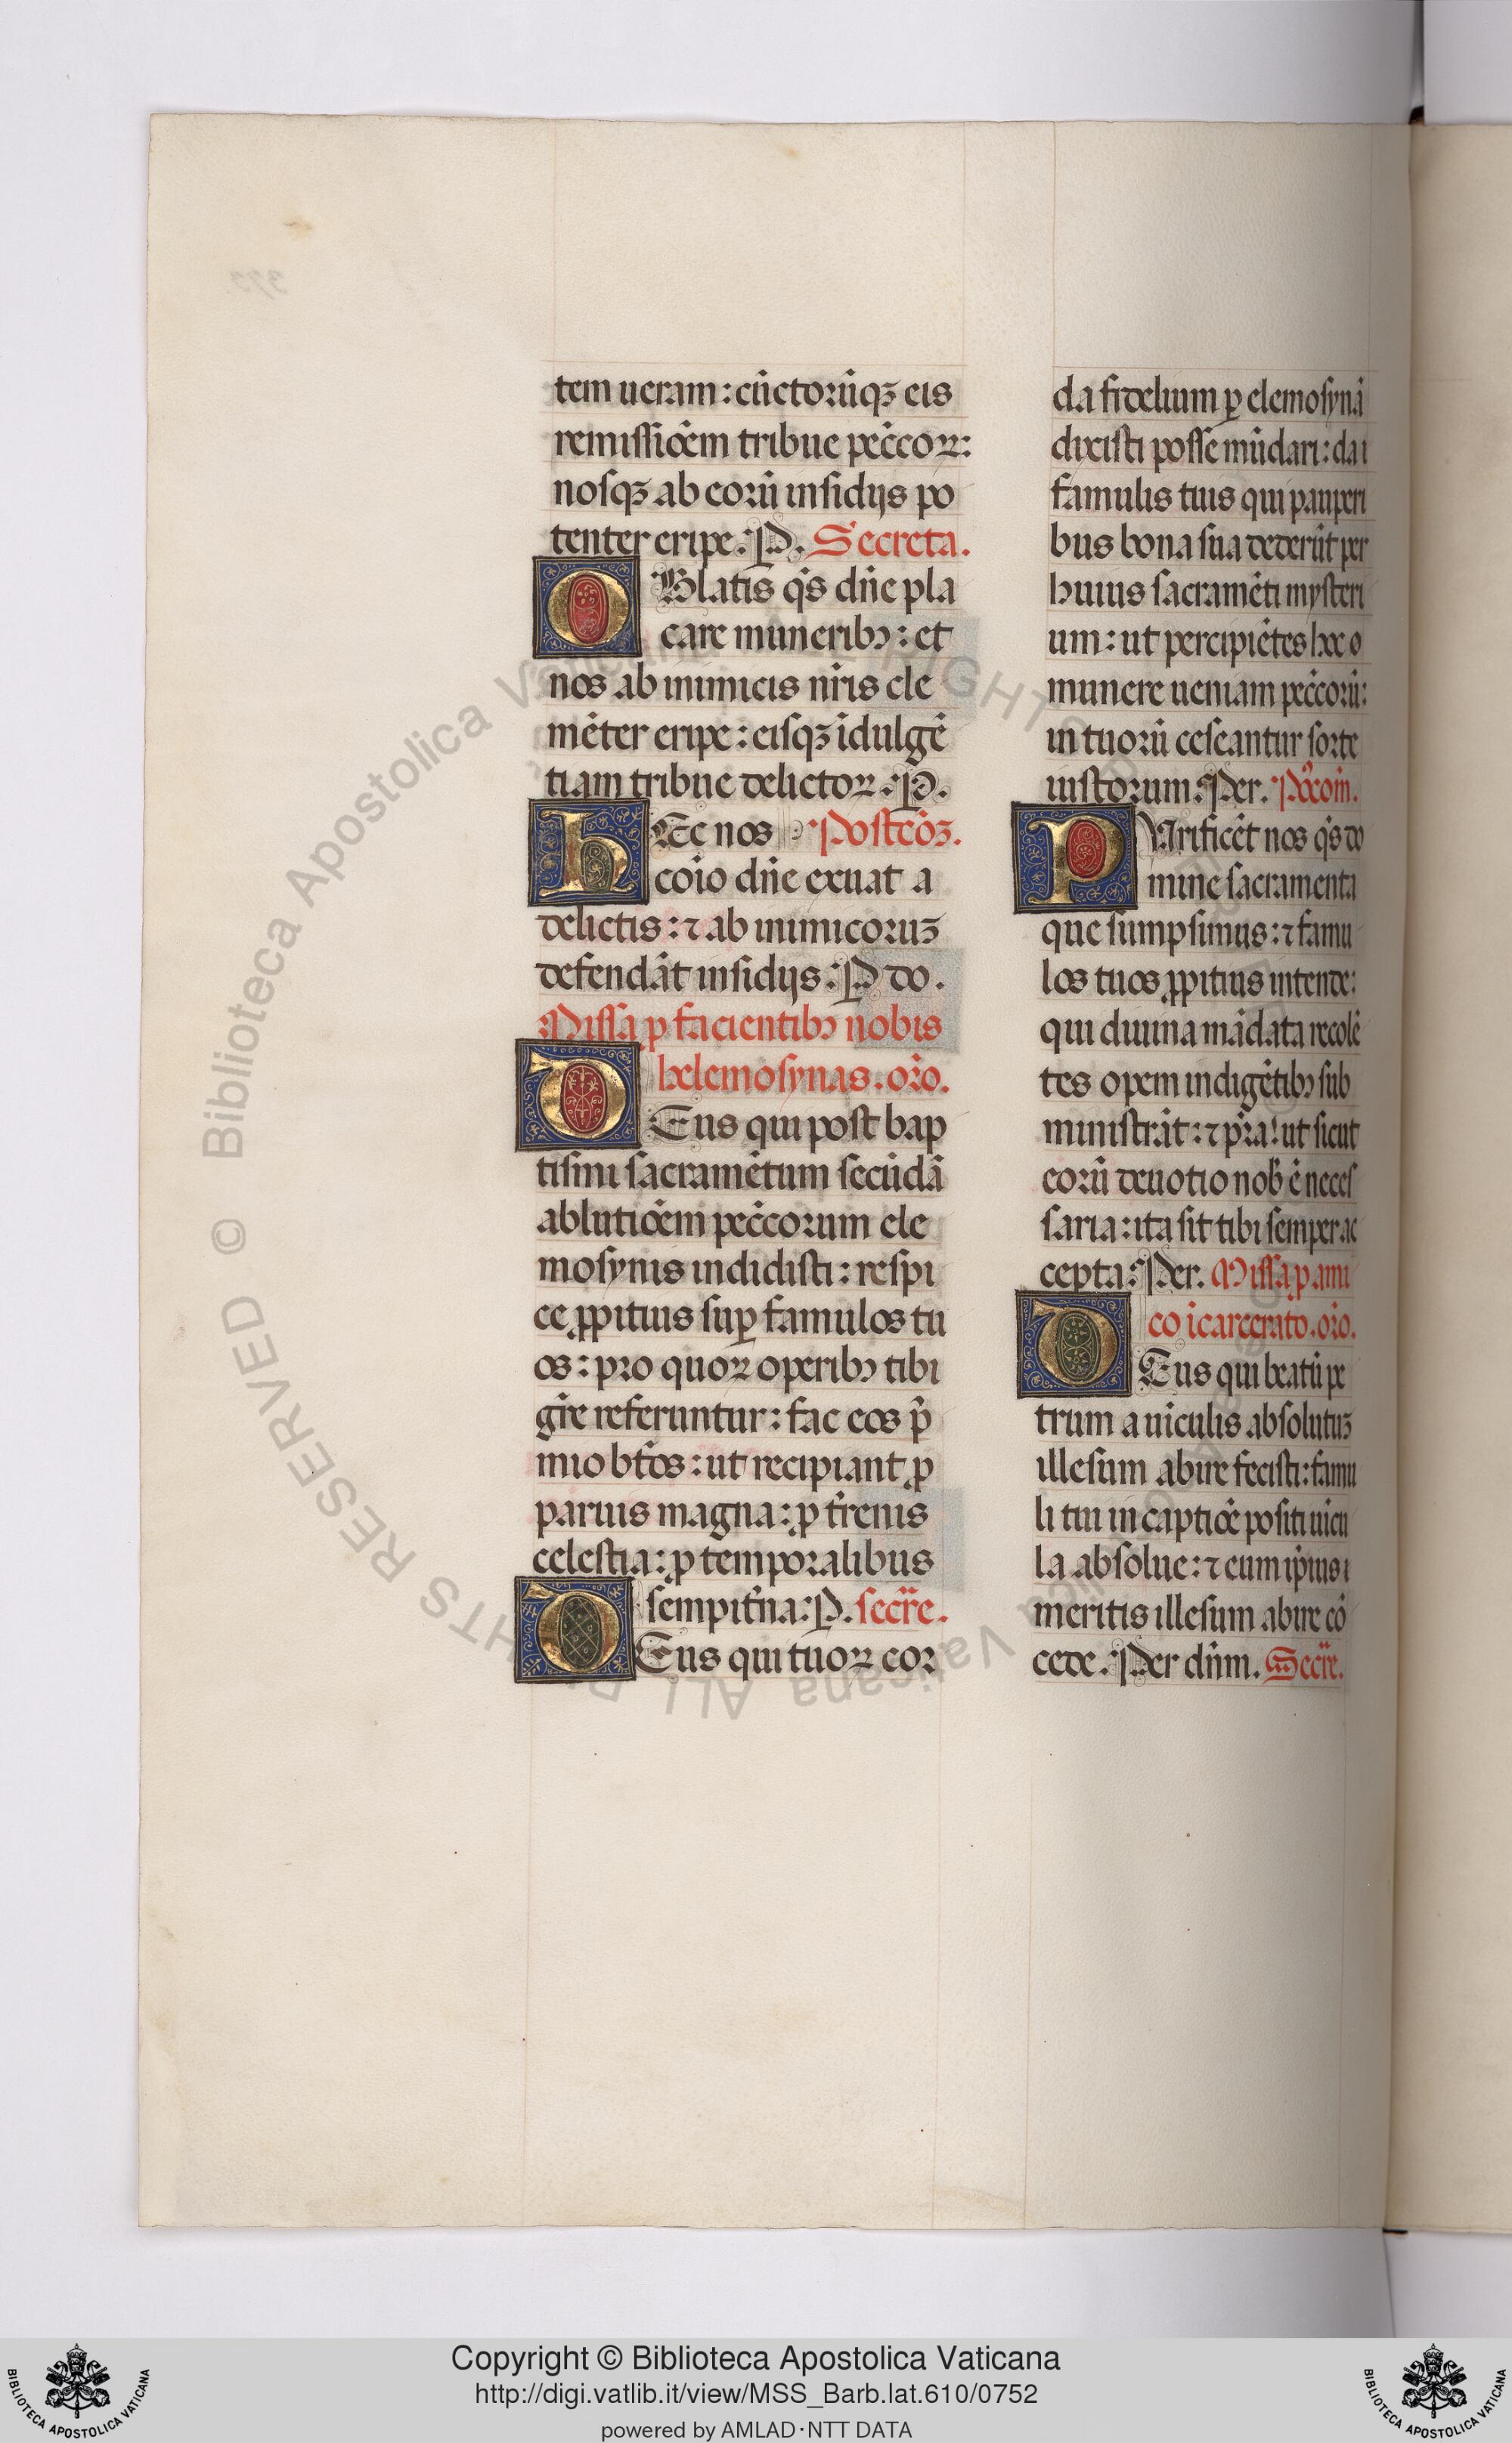 tem ueram: cũctorũqꝫ eis
remissiõem tribue pec̃coꝝ:
nosqꝫ ab eorũ insidijs po
tenter eripe. P. Secreta.
OBlatis q̃s dñe pla
care muneribꝯ: et
nos ab inimicis nr̃is cle
mẽter eripe: eisqꝫ ĩdulgẽ
tiam tribue delictoꝝ. P.
HEc nos Postcõꝫ.
cõio dñe exuat a
delictis: ⁊ ab inimicoruꝫ
defendãt insidijs. P do.
Missa ꝓ facientibꝯ nobis
helemosynas. or̃o.
DEus qui post bap
tismi sacramẽtum secũdã
ablutiõem pec̃corum ele
mosynis indidisti: respi
ce ꝓpitius suꝑ famulos tu
os: pro quoꝝ operibꝯ tibi
gr̃e referuntur: fac eos p̃
mio bt̃os: ut recipiant ꝓ
paruis magna: ꝓ tr̃enis
celestia: ꝓ temporalibus
sempit̃na: P. secr̃e.
DEus qui tuoꝝ cor
da fidelium ꝑ elemosynã
dixisti posse mũdari: da
famulis tuis qui pauperi
bus bona sua dederũt per
huius sacramẽti mysteri
um: ut percipiẽtes hec o
munere ueniam pec̃corũ:
in tuorũ cẽseantur sorte
iustorum. Per. Po᷒com̃.
PUrificẽt nos q̃s do
mine sacramenta
que sumpsimus: ⁊ famu
los tuos ꝓpitius intende:
qui diuina mãdata recolẽ
tes opem indigẽtibꝯ sub
ministrãt: ⁊ p̃ra! ut sicut
eorũ deuotio nob̃ ẽ neces
saria: ita sit tibi semper ac
cepta. Per. Missa ꝓ ami
co ĩcarcerato. or̃o.
DEus qui beatũ pe
trum a uĩculis absolutuꝫ
illesum abire fecisti: famu
li tui in captiõe positi uicu
la absolue: ⁊ eum ip̃ius
meritis illesum abire cõ
cede. Per dñm. Secr̃e.
Biblioteca Apostolica Vaticana ALL RIGHTS RESERVED ©
Copyright © Biblioteca Apostolica Vaticana
http://digi.vatlib.it/view/MSS_Barb.lat.610/0752
powered by AMLAD·NTT DATA
BIBLIOTECA APOSTOLICA VATICANA
BIBLIOTECA APOSTOLICA VATICANA